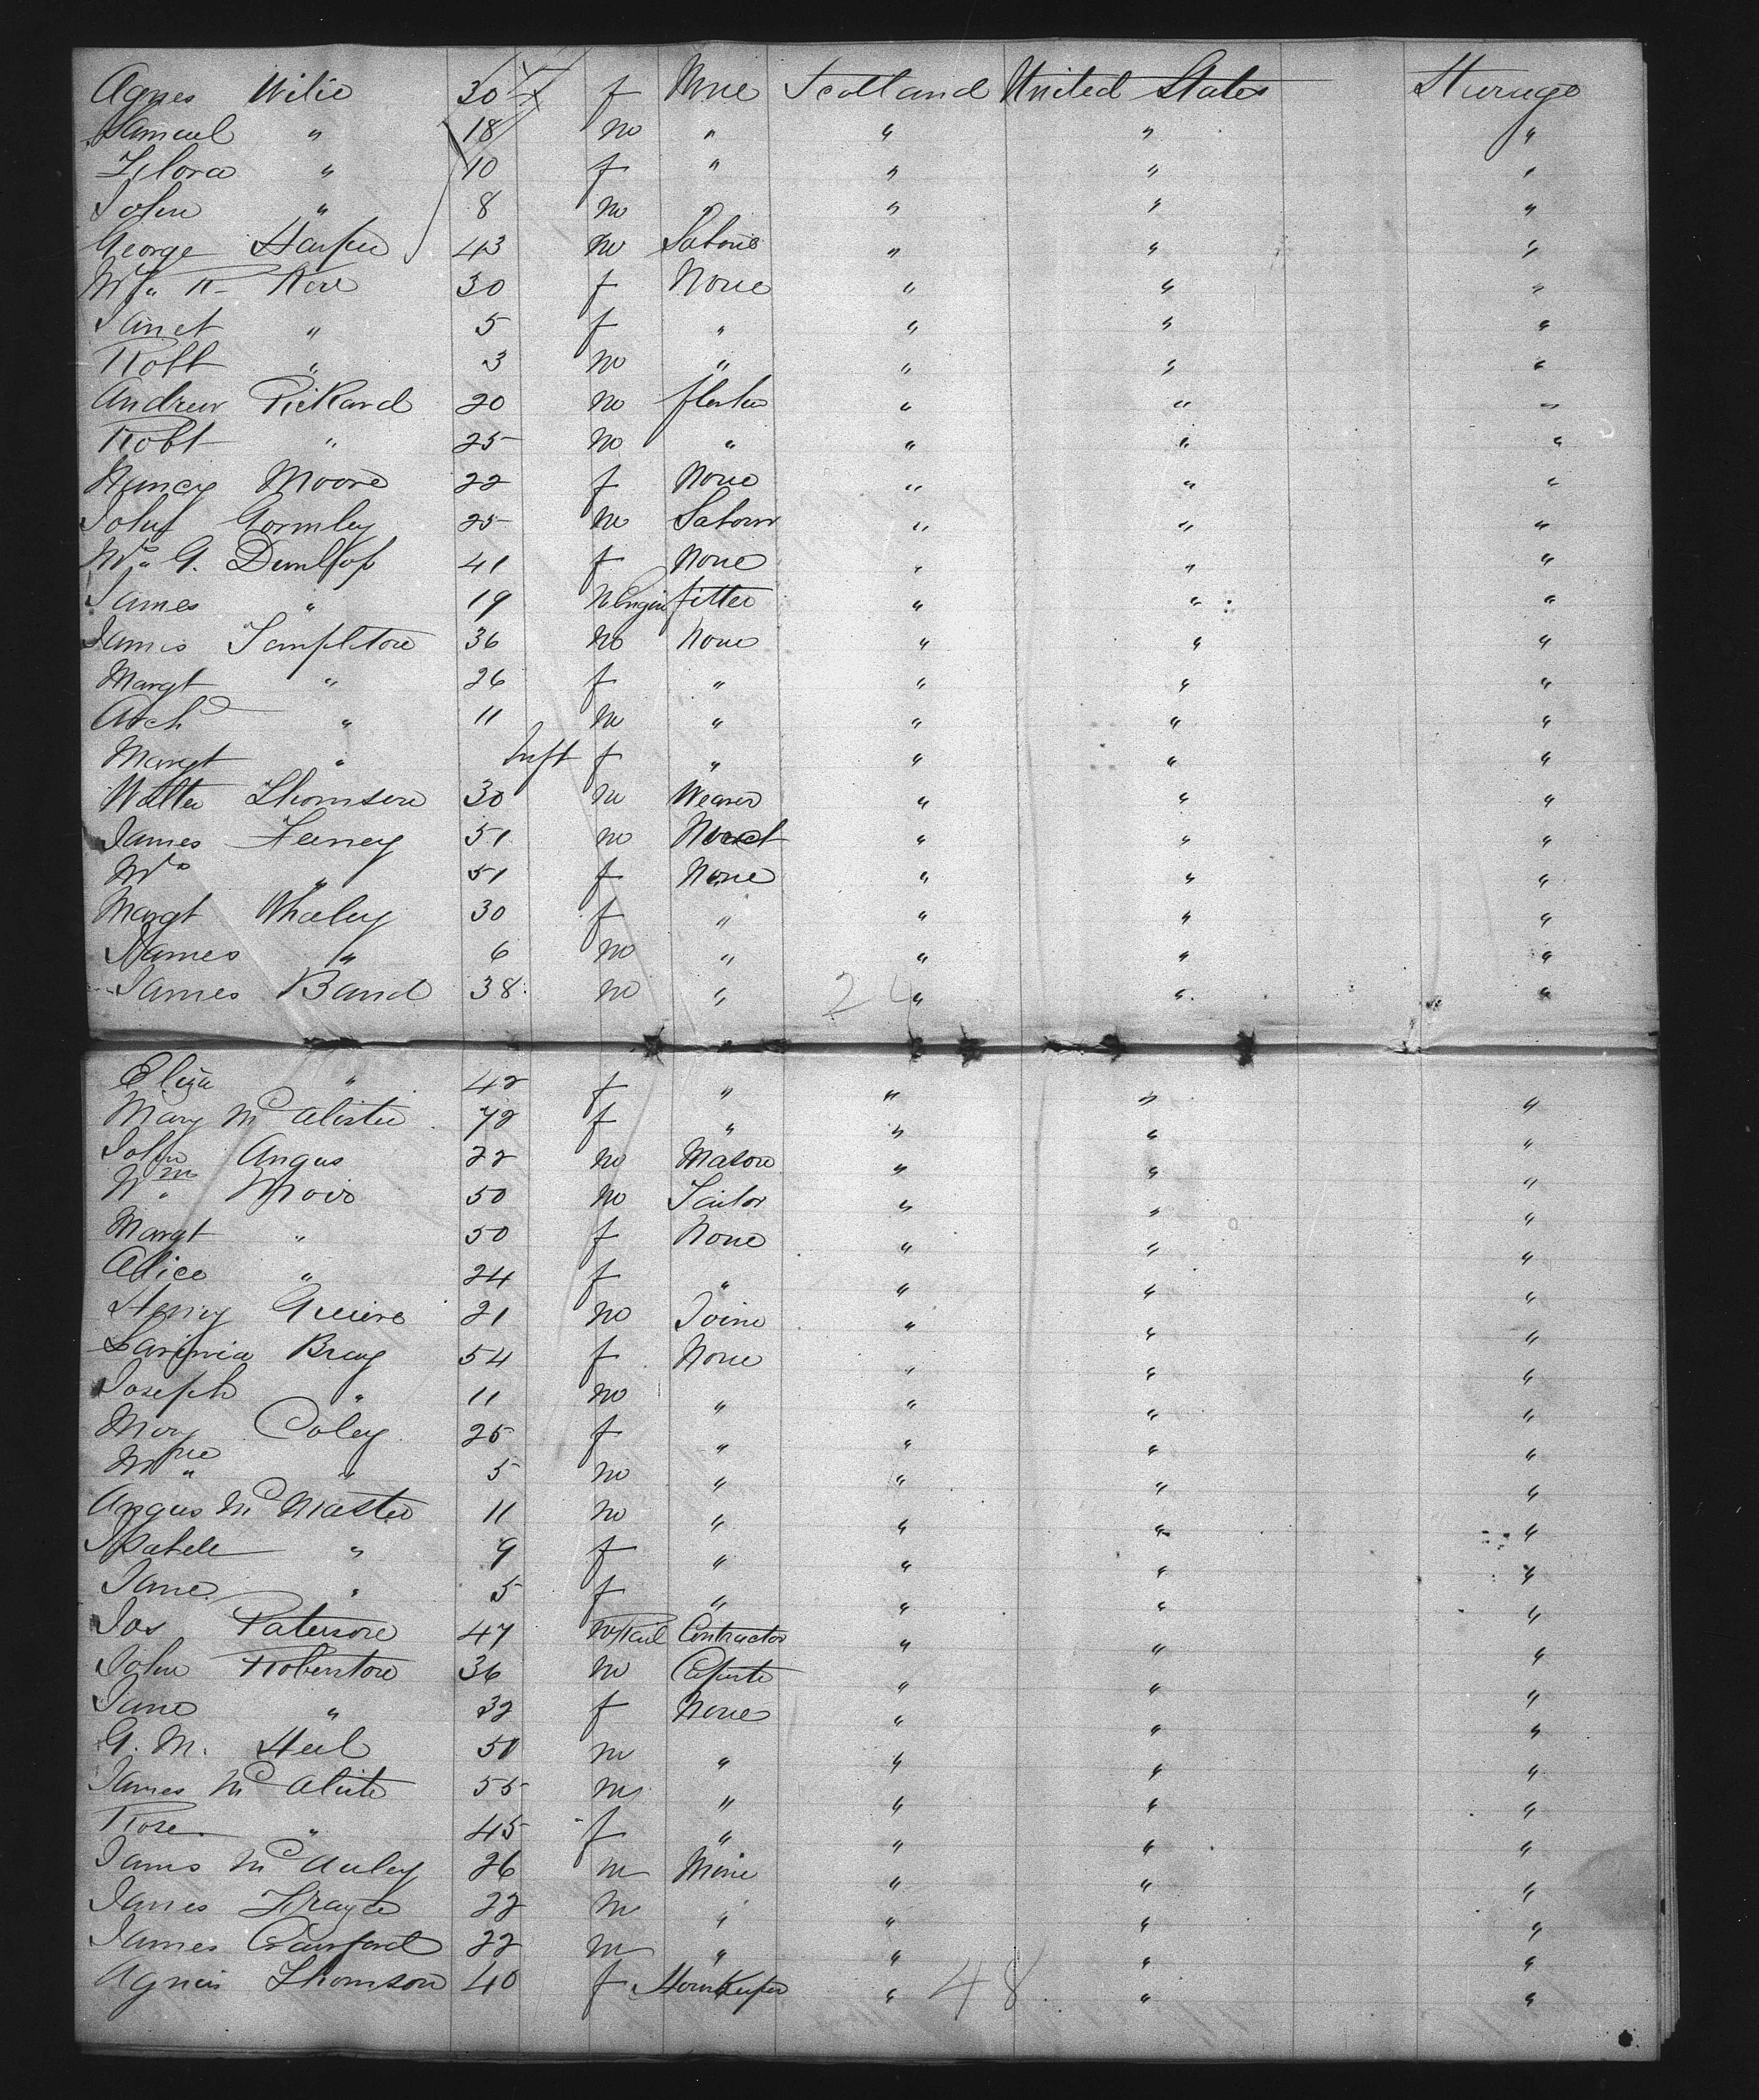 Agnes Wilie 30 f None Scotland United States Steerage
Samuel " 18 m " " " "
Flora " 10 f " " " "
John " 8 m " " " "
George Harper 43 m Labourer " " "
Mrs. R. Kerr 30 f None " " "
Janet " 5 f " " " "
Robt " 3 m " " " "
Andrew Rickard 20 m " " "
Robt " 25 m " " " "
Nancy Moore 22 f None " " "
John Gormley 25 m Labourr " " "
Mrs. G. Dunlop 41 f None " " "
James " 19 m Engine fitter " " "
James Templeton 36 m None " " "
Margt " 26 f " " " "
Arch " 11 m " " " "
Margt " Inft f " " " "
Walter Thomson 30 m Weaver " " "
James 51 m " " "
Mrs " 51 f None " " "
Margt Whaley 30 f " " " "
James " 6 m " " " "
James Band 38 m " " " "
24
Eliza " 42 f " " " "
Mary McAlister 72 f " " " "
John Angus 22 m Mason " " "
Wm. Moir 50 m Tailor " " "
Margt " 50 f None " " "
Alice " 24 f " " " "
Henry 21 m Joiner " " "
Lavinia Bray 54 f None " " "
Joseph " 11 m " " " "
Mary Coley 25 f " " " "
Wm " 5 m " " " "
Angus McMaster 11 m " " " "
Isabell " 9 f " " " "
Jane " 5 f " " " "
Jos Paterson 47 m Rail Contractor " " "
John Robertson 36 m " " "
Jane " 32 f None " " "
G. M. 50 m " " " "
James McAlister 55 m " " " "
Rose " 45 f " " " "
James McAuley 26 m Miner " " "
James 22 m " " " "
James Crawford 22 m " " " "
Agnes Thomson 40 f HouseKeeper " " "
48